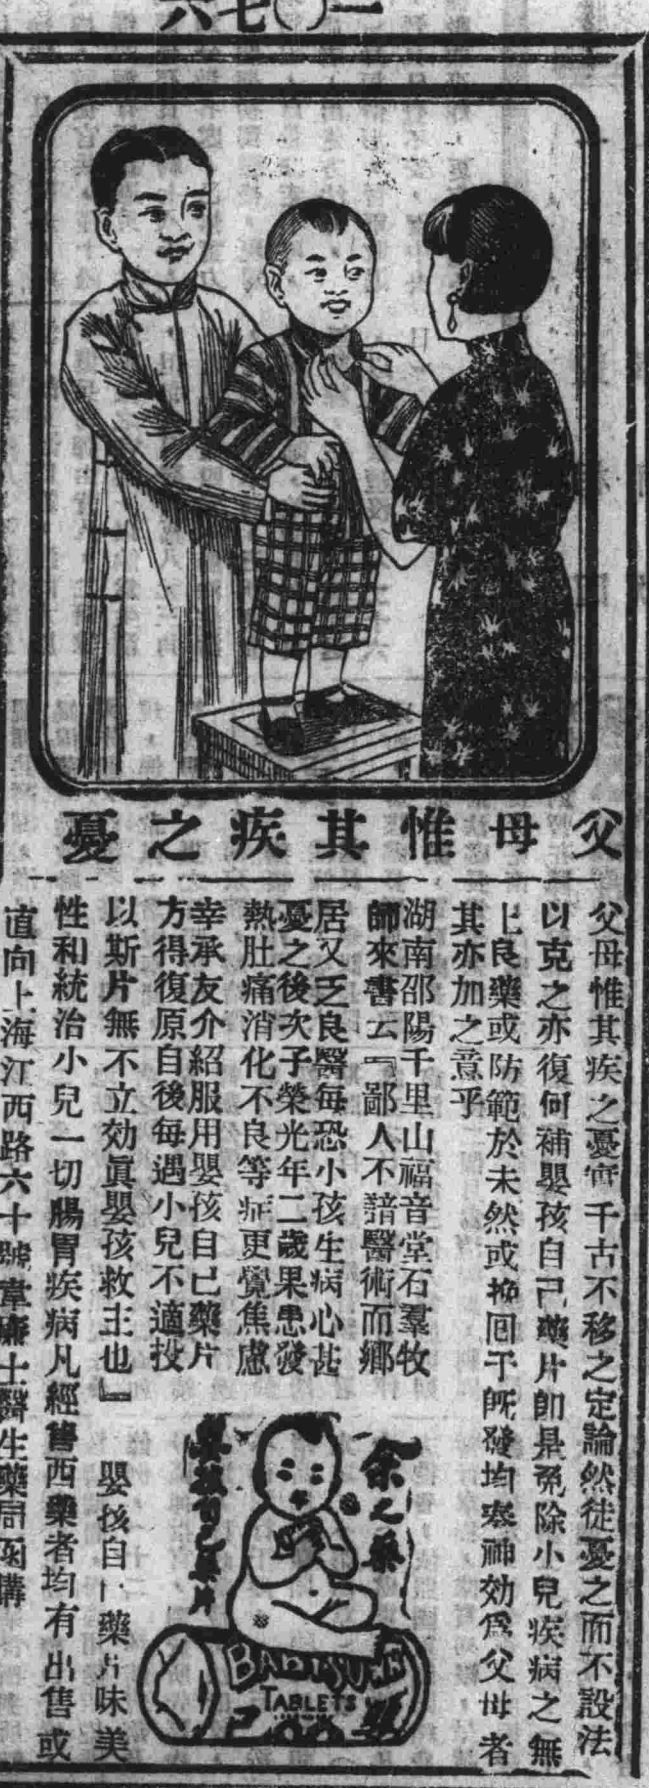 一〇七六
父母惟其疾之憂
父母惟其疾之憂實千古不移之定論然徒憂之而不設法
以克之亦復何補嬰孩自己藥片卽是免除小兒疾病之無
上良藥或防範於未然或挽回于既發均奏神効爲父母者
其亦加之意乎
湖南邵陽千里山福音堂石羣牧
師來書云『鄙人不諳醫術而鄉
居又乏良醫每恐小孩生病心甚
憂之後次子榮光年二歲果患發
熱肚痛消化不良等症更覺焦慮
幸承友介紹服用嬰孩自己藥片
方得復原自後每遇小兒不適投
以斯片無不立効眞嬰孩救主也』
嬰孩自己藥片味美
性和統治小兒一切腸胃疾病凡經售西藥者均有出售或
直向上海江西路六十號韋廉士醫生藥局函購
余之藥
嬰孩自己藥片
TABLETS